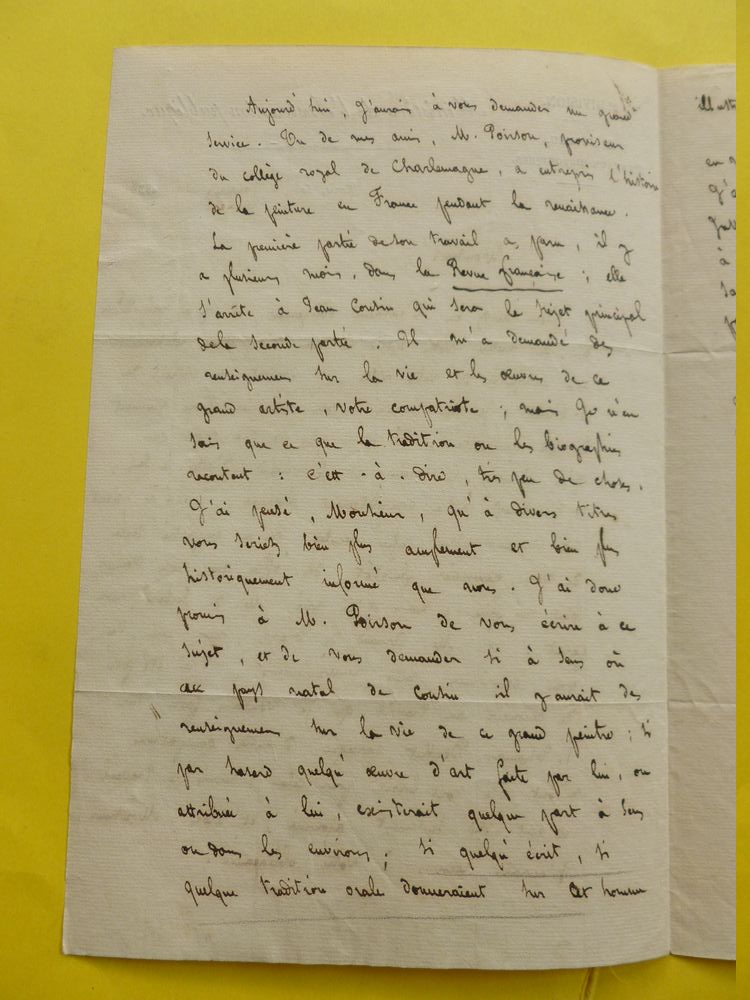 Aujourd'hui, j'aurais à vous demander un grand
service. Un de mes amis, M. Poirson, proviseur
du collège royal de Charlemagne, a entrepris l'histoire
de la peinture en France pendant la renaissance.
La première partie de son travail a paru, il y
a plusieurs mois, dans la Revue française ; elle
s'arrête à Jean Cousin qui sera le sujet principal
de la seconde partie. Il m'a demandé des
renseignemens sur la vie et les œuvres de ce
grand artiste, votre compatriote ; mais je n'en
sais que ce que la tradition ou les biographies
racontent : c'est-à-dire, très peu de choses.
J'ai pensé, Monsieur, qu'à divers titres
vous seriez bien plus amplement et bien plus
historiquement informé que nous. J'ai donc
promis à M. Poirson de vous écrire à ce
sujet, et de vous demander si à Sens ou
au pays natal de Cousin il y aurait des
renseignemens sur la vie de ce grand peintre ; si
par hasard quelqu'œuvre d'art faite par lui, ou
attribuée à lui, existerait quelque part à Sens
ou dans les environs ; si quelqu'écrit, si
quelque tradition orale donneraient sur cet homme
illust
en
j'a
à
sa